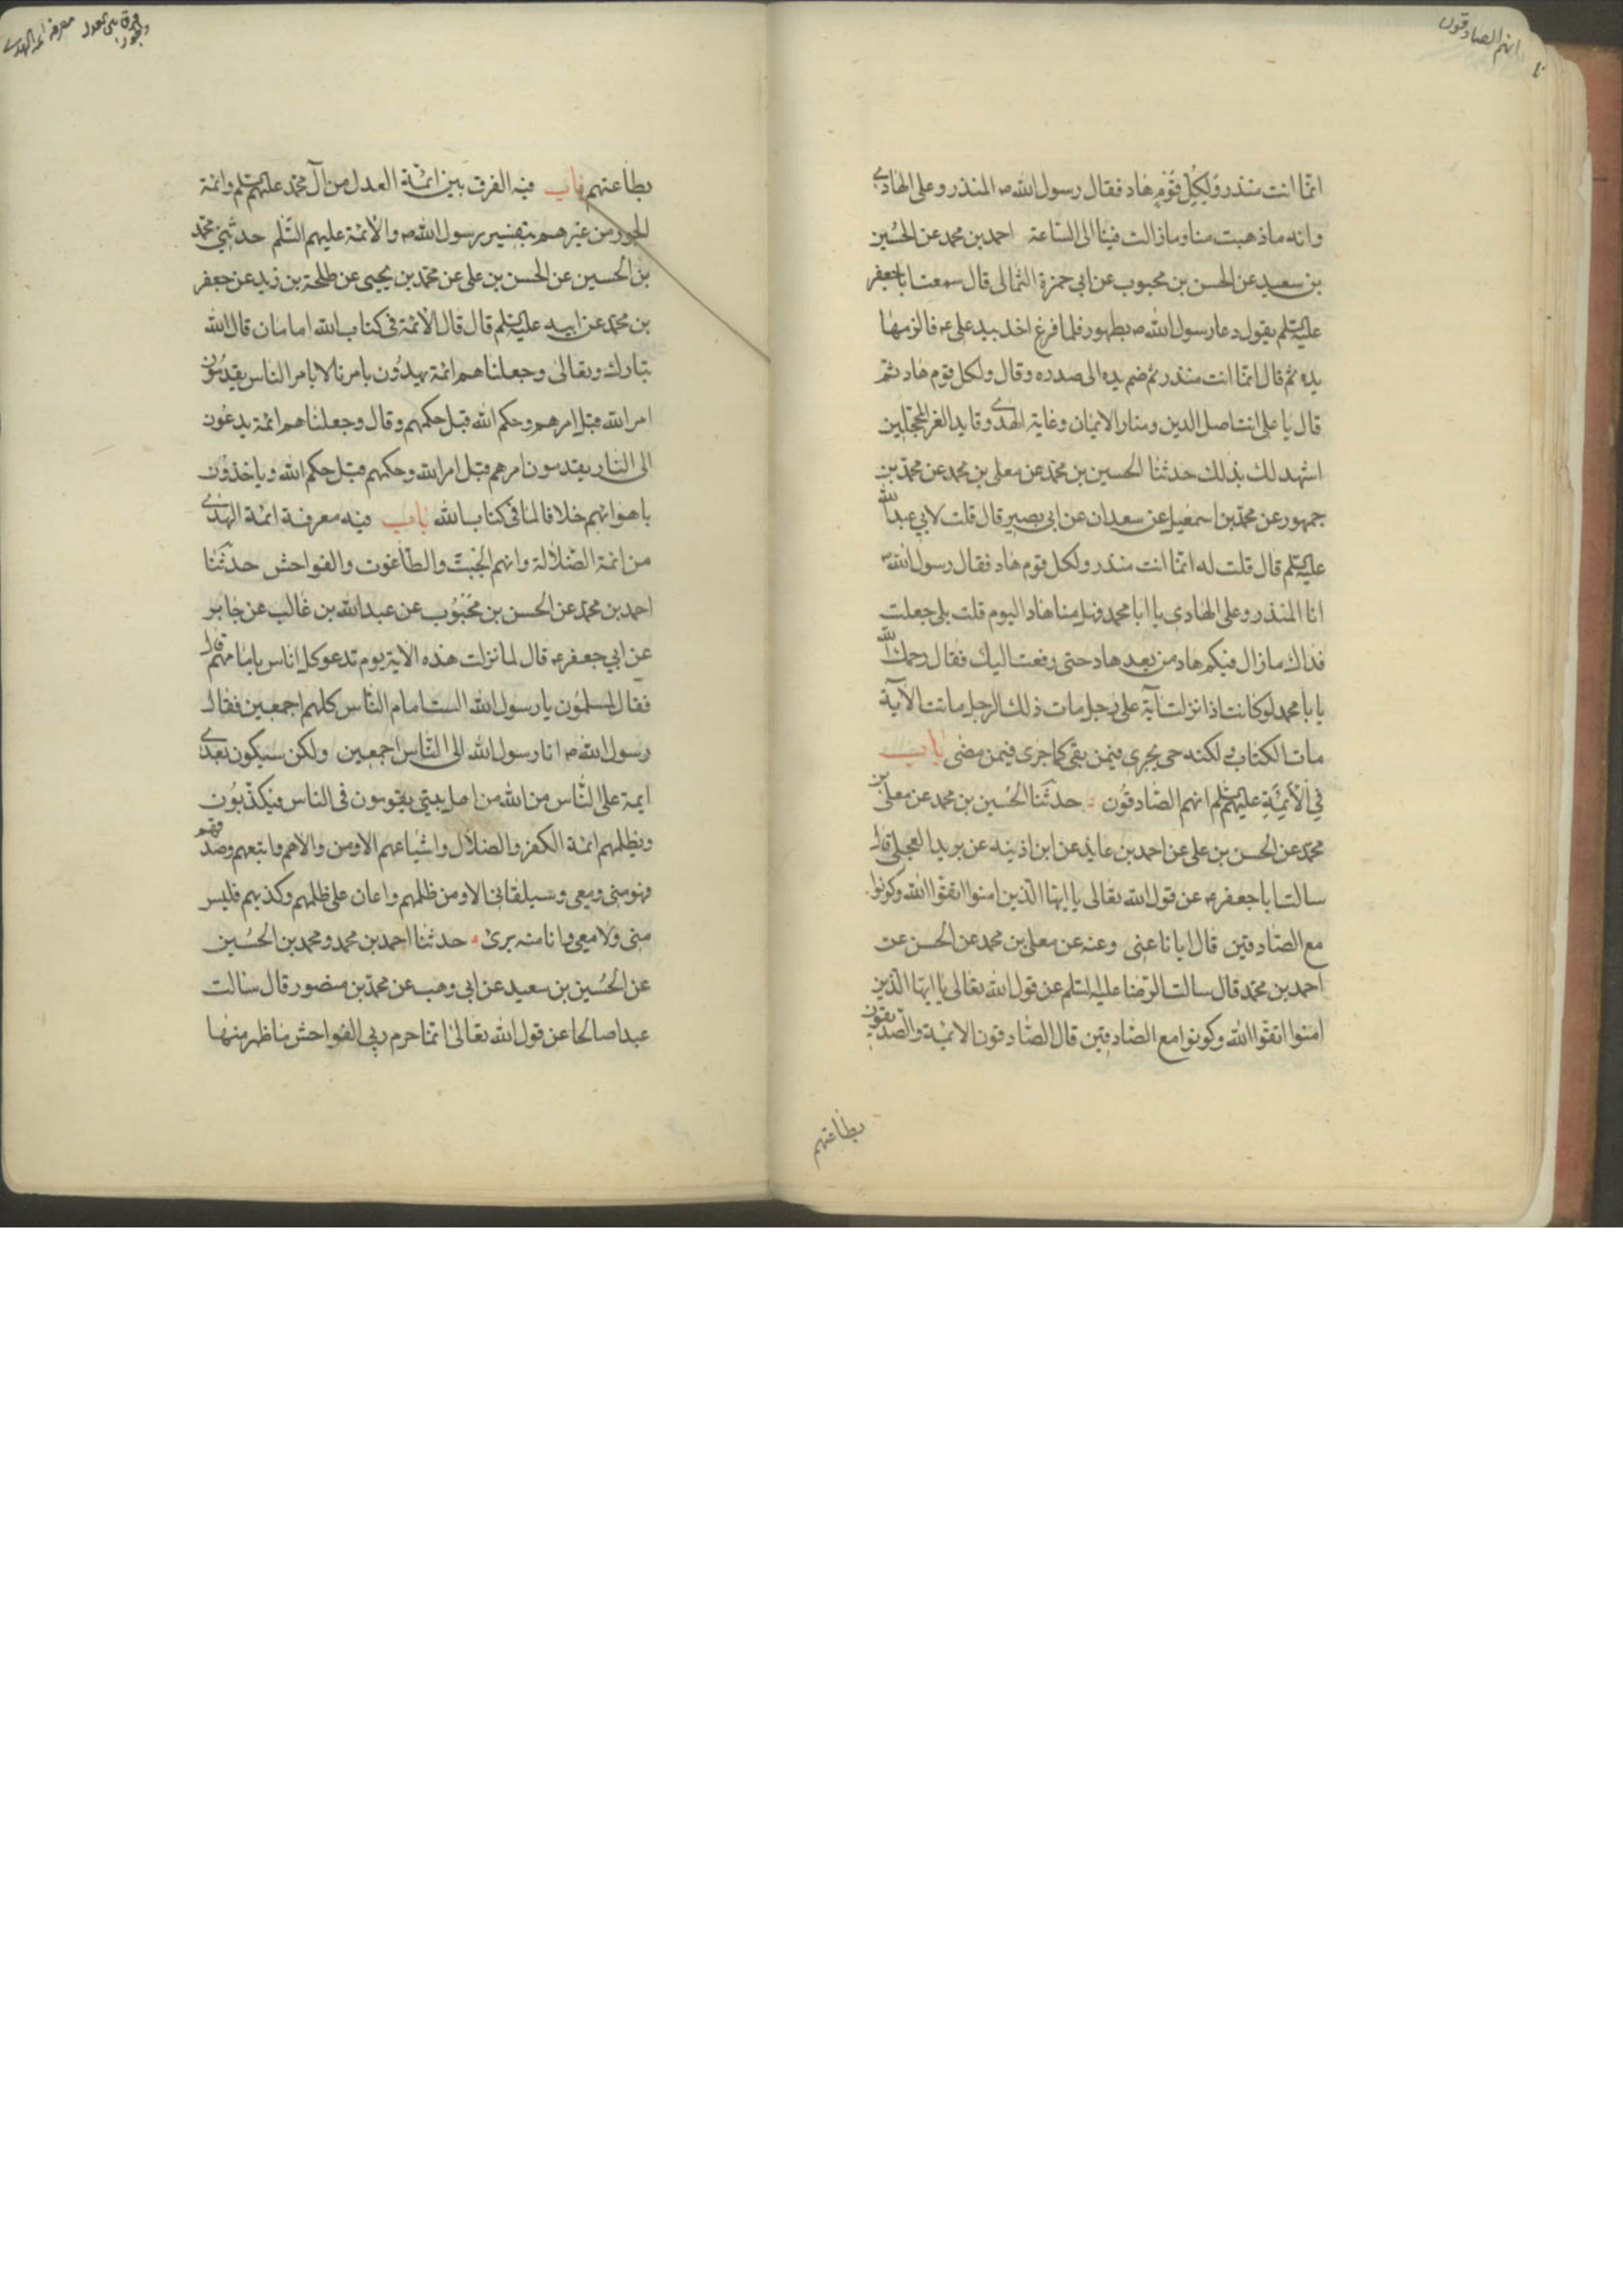 انهم الصادقون
انما انت منذر ولكل قوم هاد فقال رسول الله ص المنذر وعلى الهادى
وانه ماذهبت منا ومازالت فينا الى الساعة احمد بن محمد عن الحسين
بن سعيد عن الحسن بن محبوب عن ابى حمزة الثمالى قال سمعت اباجعفر
عليه السلم يقول دعا رسول الله ص بطهور فلما فرغ اخذ بيد على ع فالزمها
يده ثم قال انما انت منذر ثم ضم يده الى صدره وقال ولكل قوم هاد ثم
قال يا على انت اصل الدين ومنار الايمان وغاية الهدى وقايد الغر المحجلين
اشهد لك بذلك حدثنا الحسين بن محمد عن معلى بن محمد عن محمد بن
جمهور عن محمد بن اسمعيل عن سعدان عن ابى بصير قال قلت لابى عبدالله
عليه السلم قال قلت له انما انت منذر ولكل قوم هاد فقال رسول الله ص
انا المنذر وعلى الهادى يا ابا محمد فهل منا هاد اليوم قلت بلى جعلت
فداك مازال فيكم هاد من بعد هاد حتى رفعت اليك فقال رحمك الله
يا با محمد لو كانت اذا نزلت آية على رجل مات ذلك الرجل ماتت الآية
مات الكتاب ولكنه حى يجرى فيمن بقى كما جرى فيمن مضى باب
فى الأئمة عليهم السلم انهم الصادقون حدثنا الحسين بن محمد عن معلى بن
محمد عن الحسن بن على عن احمد بن عايذ عن ابن اذينه عن بريد العجلى قال
سالت اباجعفر ع عن قول الله تعالى يا ايها الذين امنوا اتقوا الله وكونوا
مع الصادقين قال ايانا عنى وعنه عن معلى بن محمد عن الحسن عن
احمد بن محمد قال سالت الرضا عليه السلم عن قول الله تعالى يا ايها الذين
امنوا اتقوا الله وكونوا مع الصادقين قال الصادقون الائمة والصديقون
بطاعتهم
معرفة ائمة الهدى
بطاعتهم باب فيه الفرق بين ائمة العدل من آل محمد عليهم السلم وائمة
الجور من غيرهم بتفسير رسول الله ص والأئمة عليهم السلم حدثنى محمد
بن الحسين عن الحسن بن على عن محمد بن يحيى عن طلحة بن زيد عن جعفر
بن محمد عن ابيه عليه السلم قال قال الأئمة فى كتاب الله امامان قال الله
تبارك وتعالى وجعلناهم ائمة يهدون بامرنا لا بامر الناس يقدمون
امر الله قبل امرهم وحكم الله قبل حكمهم وقال وجعلناهم ائمة يدعون
الى النار يقدمون امرهم قبل امر الله وحكمهم قبل حكم الله وياخذون
باهوائهم خلافا لما فى كتاب الله باب فيه معرفة ائمة الهدى
من ائمة الضلالة وانهم الجبت والطاغوت والفواحش حدثنا
احمد بن محمد عن الحسن بن محبوب عن عبدالله بن غالب عن جابر
عن ابى جعفر ع قال لما نزلت هذه الاية يوم ندعو كل اناس بامامهم قال
فقال المسلمون يا رسول الله الست امام الناس كلهم اجمعين فقال
رسول الله ص انا رسول الله الى الناس اجمعين ولكن سيكون بعدى
ايمة على الناس من الله من اهل بيتى يقومون فى الناس فيكذبون
ويظلمهم ائمة الكفر والضلال واشياعهم الا ومن والاهم واتبعهم وصدقهم
فهو منى ومعى وسيلقانى الا ومن ظلمهم واعان على ظلمهم وكذبهم فليس
منى ولا معى وانا منه برئ حدثنا احمد بن محمد ومحمد بن الحسين
عن الحسين بن سعيد عن ابى وهب عن محمد بن منصور قال سالت
عبدا صالحا عن قول الله تعالى انما حرم ربى الفواحش ما ظهر منها